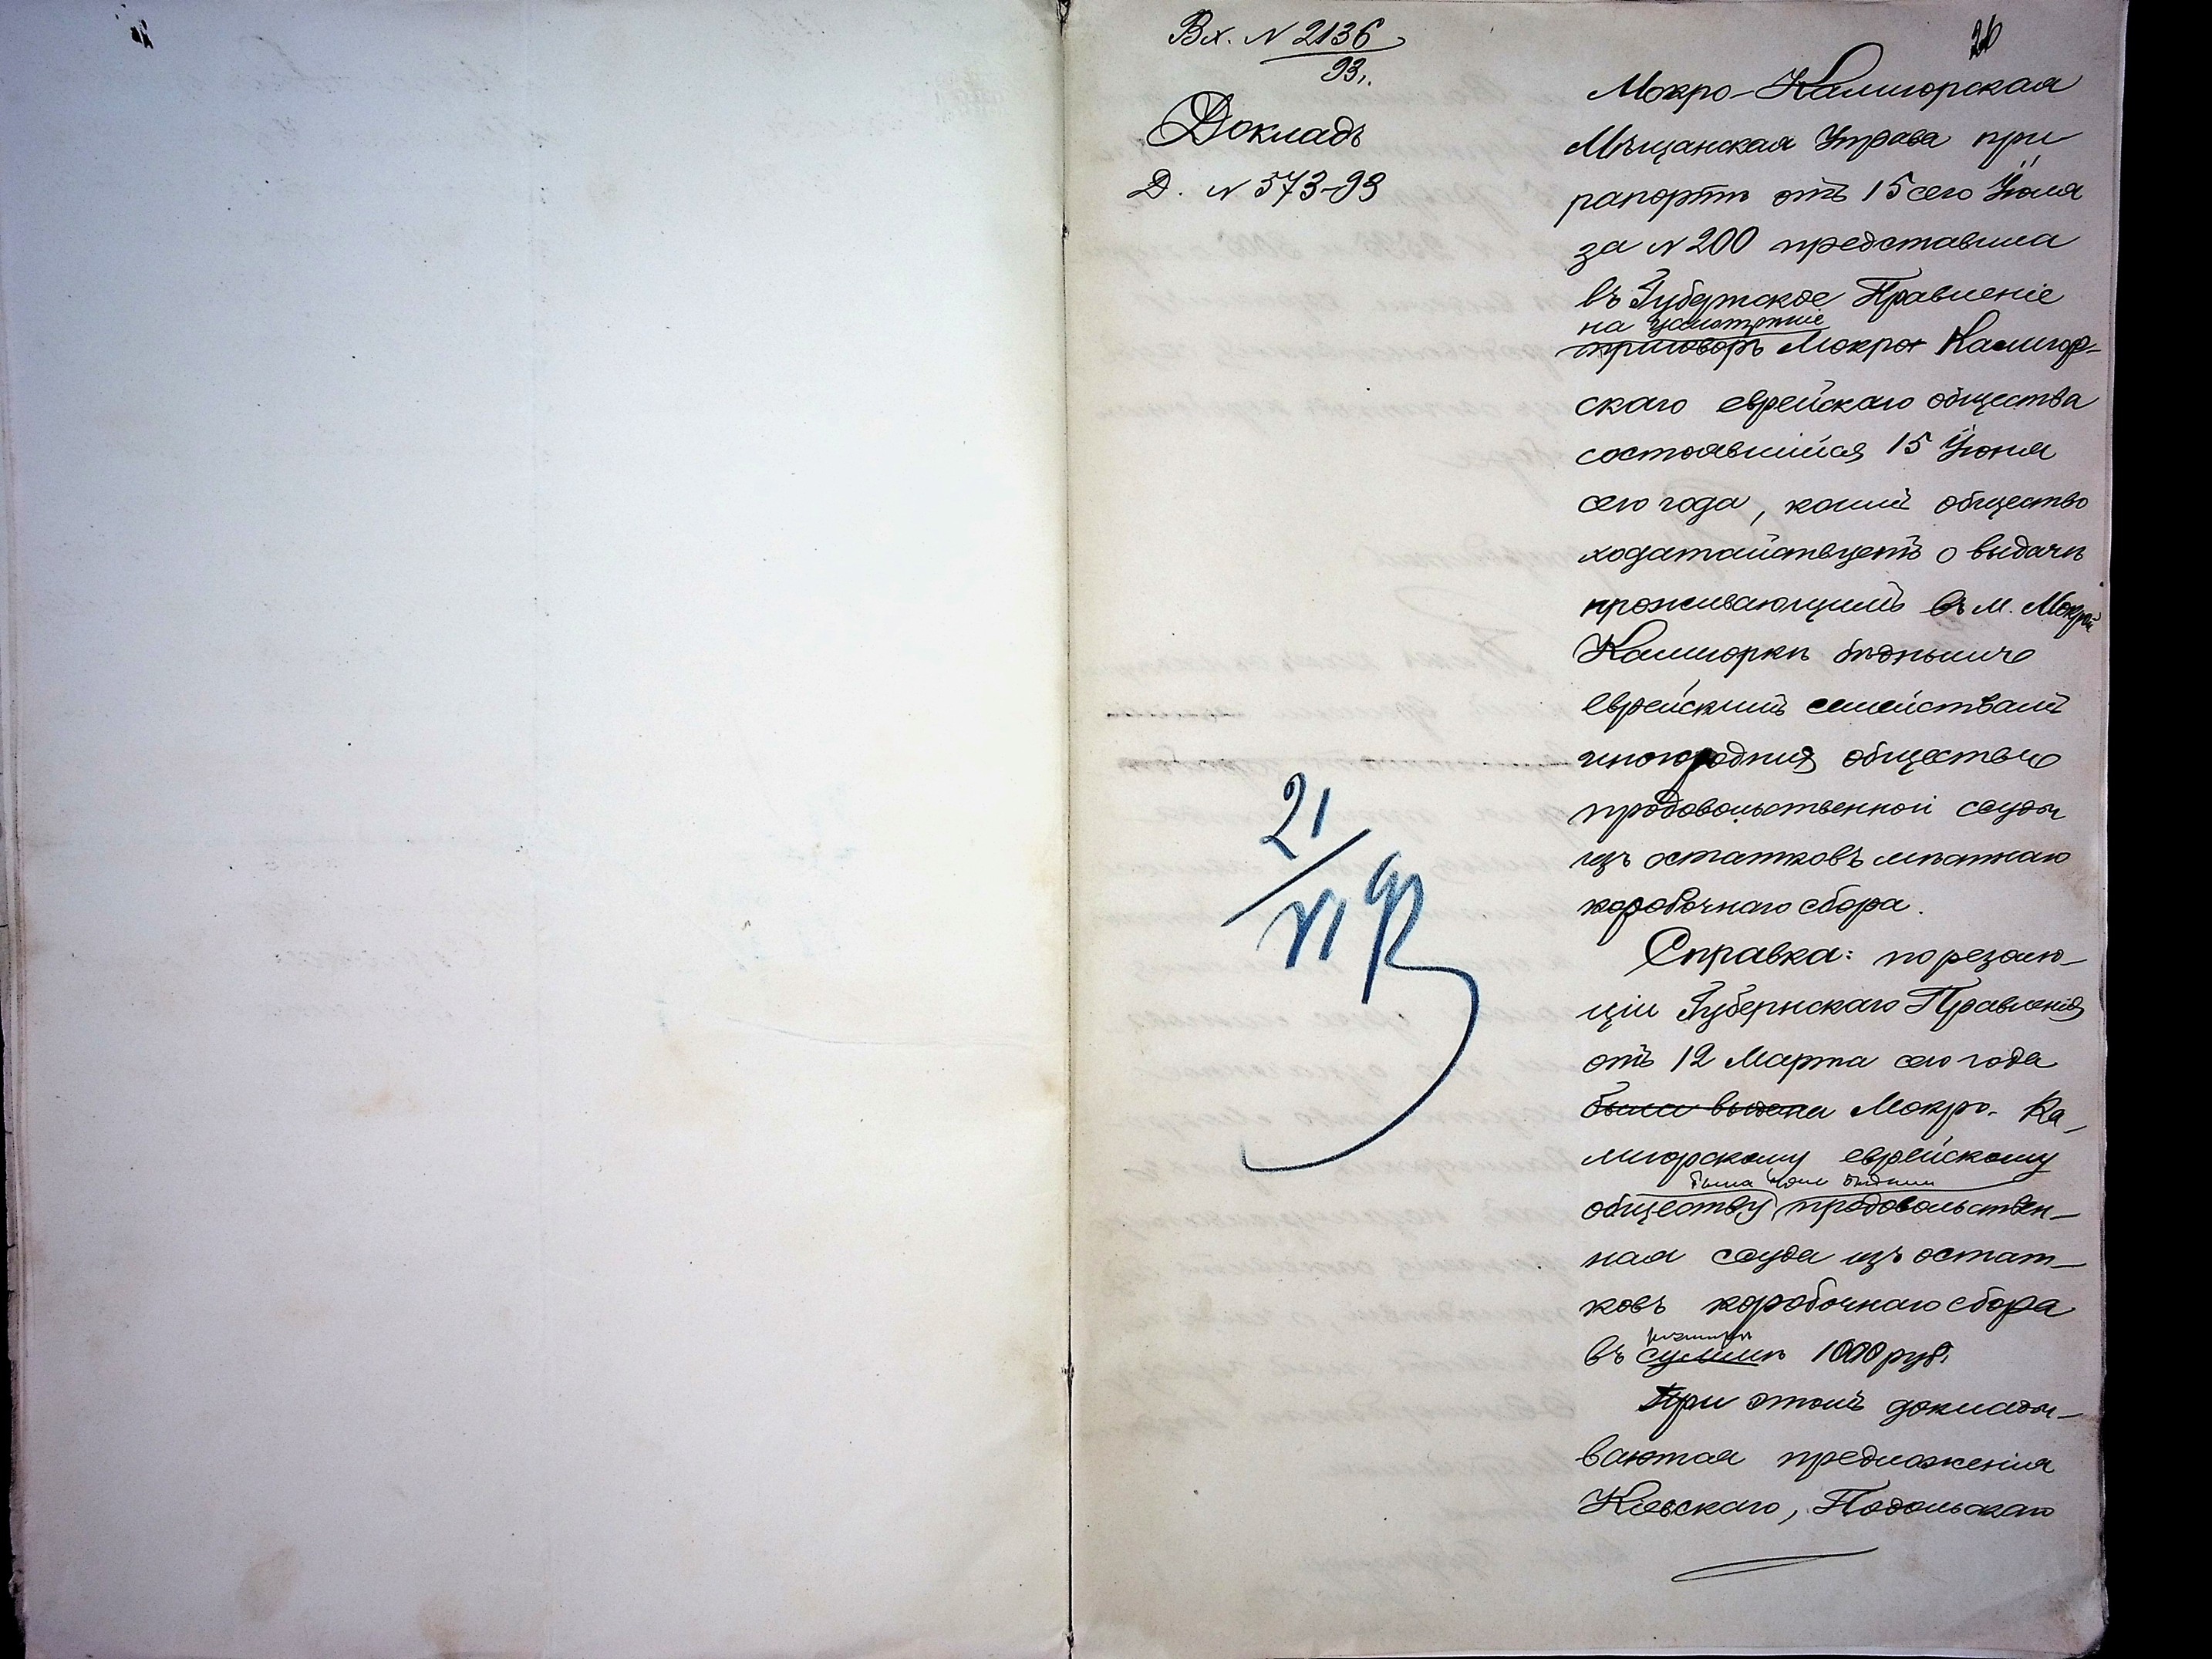 Вх. N 2136
93 г.
Докладъ
Д. N 573-93
21
VI 93
26
Мокро-Калигорская
Мѣщанская Управа при
рапортѣ отъ 15 сего Іюля
за N 200 представила
въ Губернское Правленіе
на усмотрѣніе
приговоръ Мокро-Калигор-
скаго еврейскаго общества
состоявшійся 15 Іюня
сего года, коимъ общество
ходатайствуетъ о выдачѣ
проживающимъ въ м. Мокрой
Калигоркѣ бѣднымъ
еврейскимъ семействамъ
иногороднихъ обществъ
продовольственной ссуды
изъ остатковъ мѣстнаго
коробочнаго сбора.
Справка: по резолю-
ціи Губернскаго Правленія
отъ 12 Марта сего года
была выдана Мокро-Ка-
лигорскому еврейскому
была выдана
обществу продовольствен-
ная ссуда изъ остат-
ковъ коробочнаго сбора
размѣрѣ
въ суммѣ 1000 руб.
При этомъ доклады-
ваются предложенія
Кіевскаго, Подольскаго